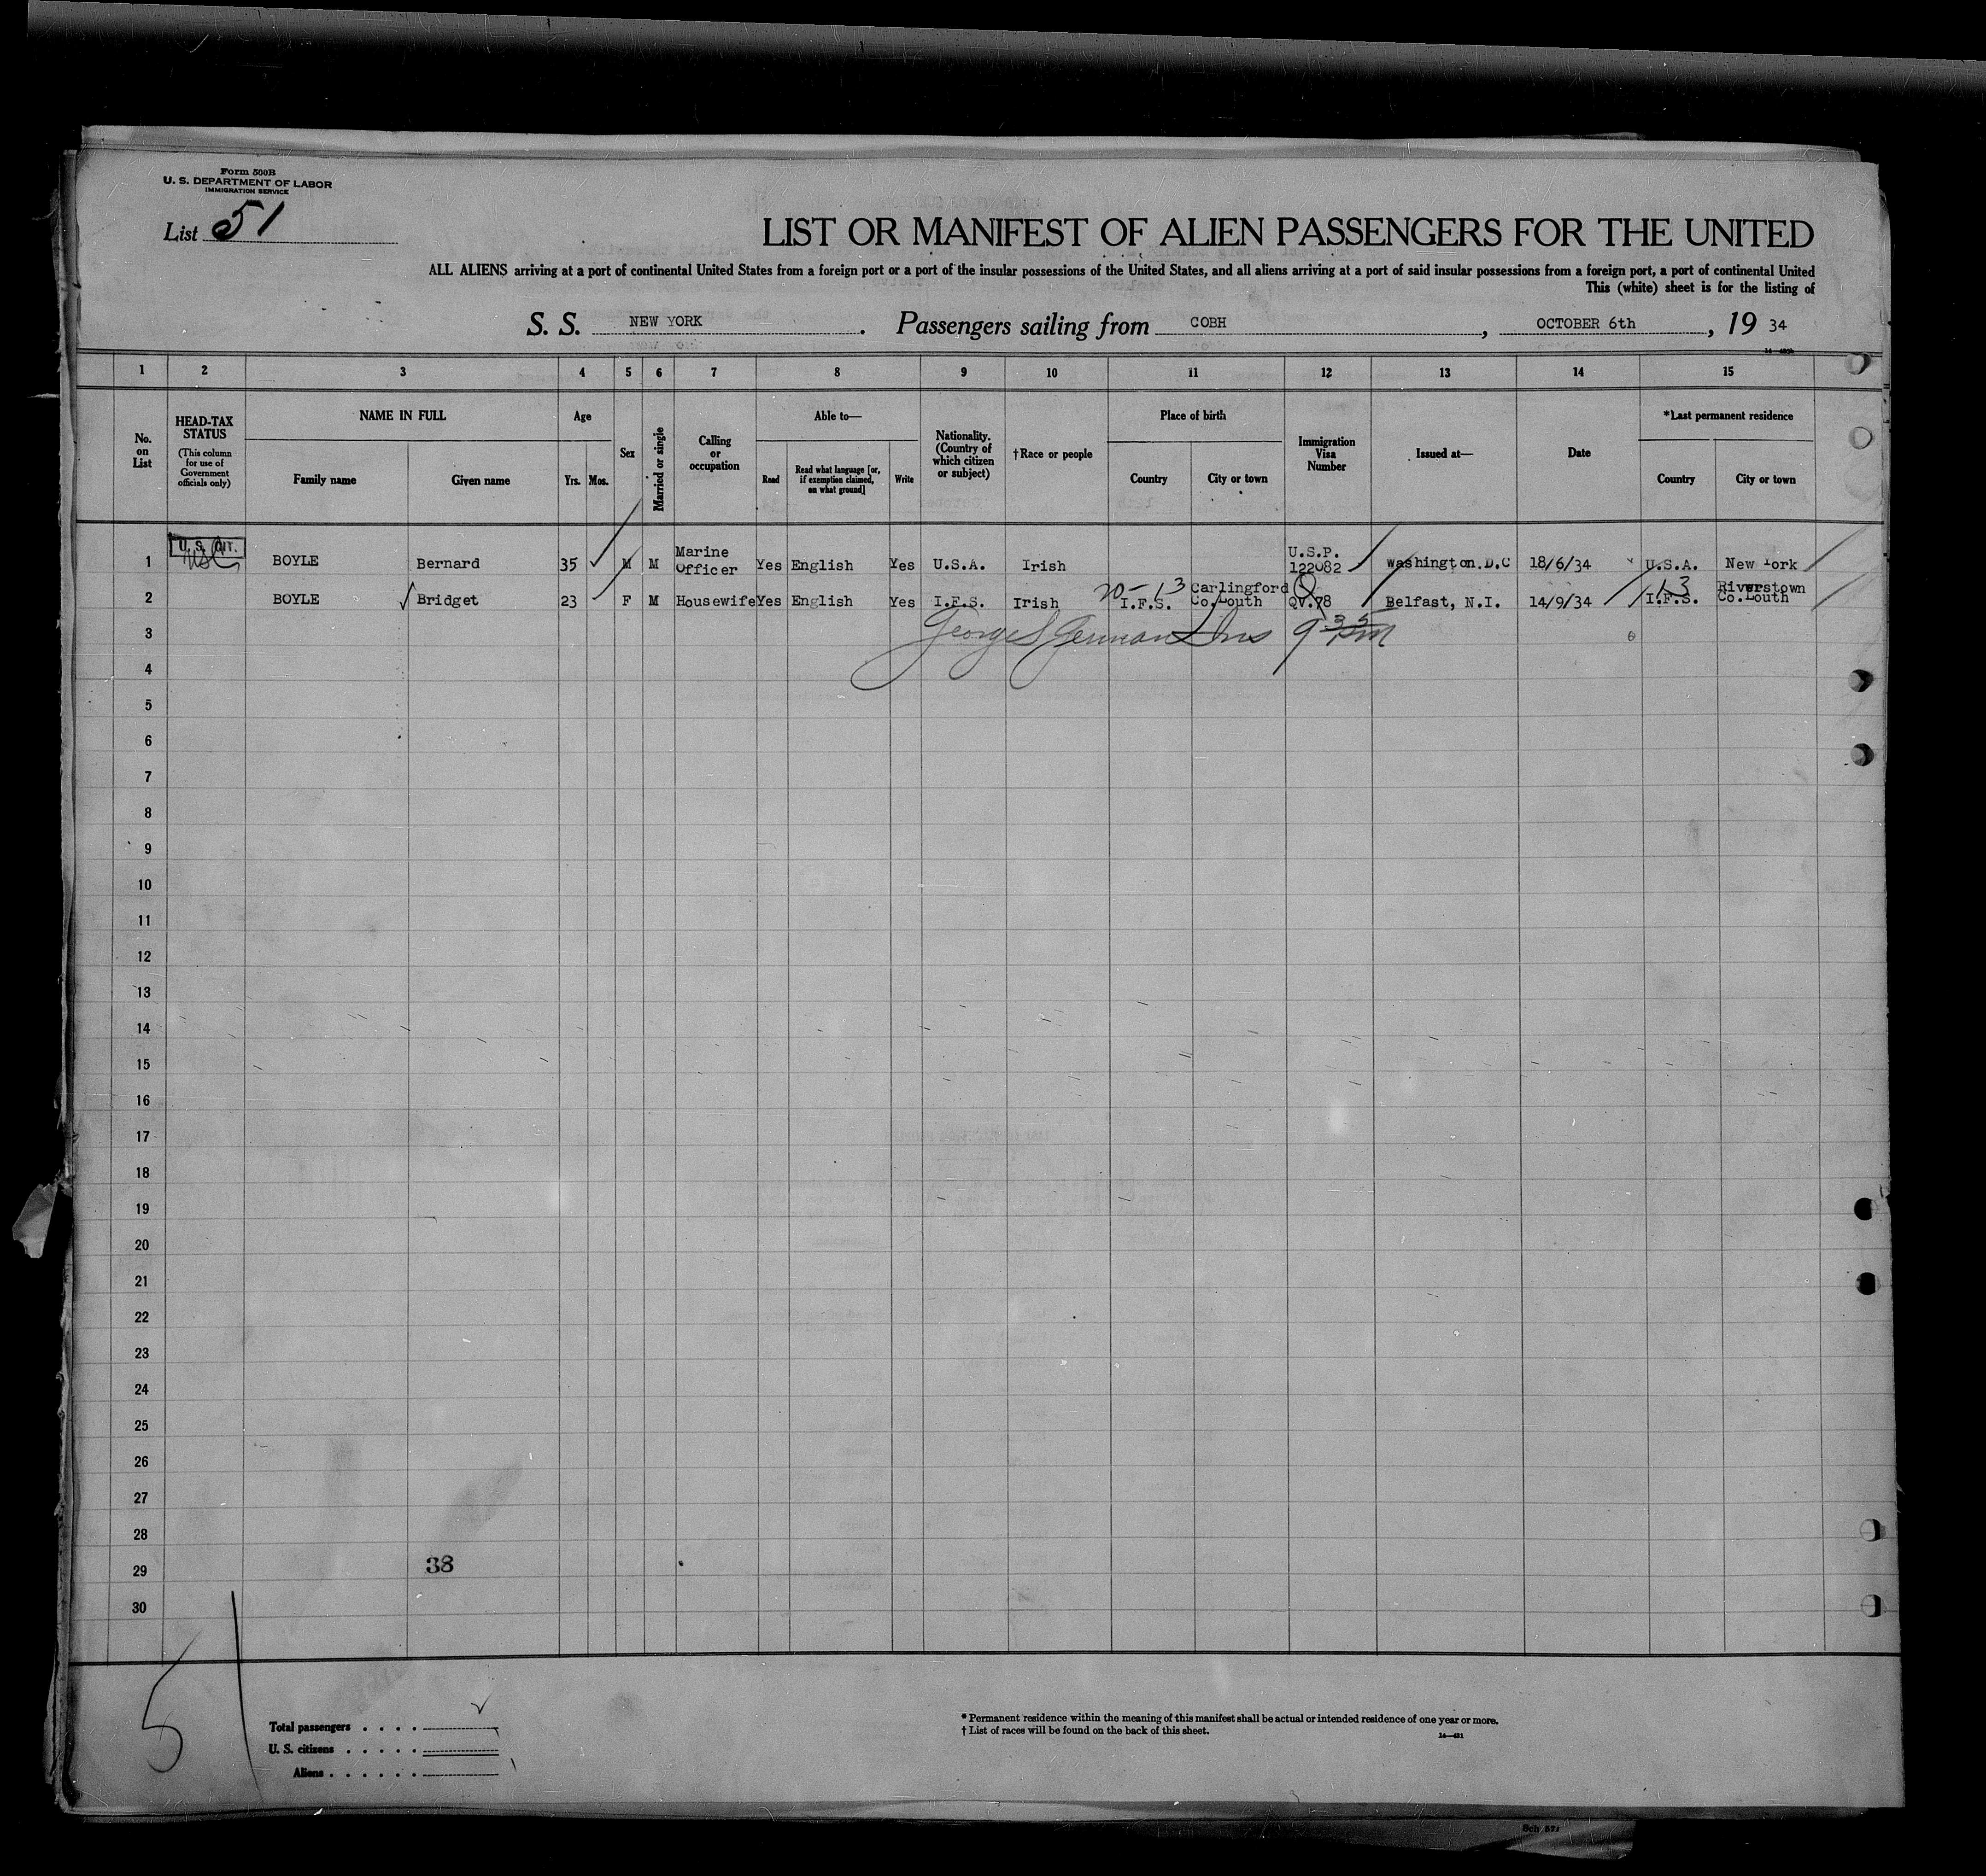 Form 500B
U. S. DEPARTMENT OF LABOR
IMMIGRATION SERVICE
List 51
LIST OR MANIFEST OF ALIEN PASSENGERS FOR THE UNITED
ALL ALIENS arriving at a port of continental United States from a foreign port or a port of the insular possessions of the United States, and all aliens arriving at a port of said insular possessions from a foreign port, a port of continental United
This (white) sheet is for the listing of
S. S. NEW YORK. Passengers sailing from COBH, OCTOBER 6th, 19 34
1 2 3 4 5 6 7 8 9 10 11 12 13 14 15
No. on List
HEAD-TAX STATUS
(This column for use of Government officials only)
NAME IN FULL
Family name Given name
Age
Yrs. Mos.
Sex
Married or single
Calling or occupation
Able to—
Read
Read what language [or, if exemption claimed, on what ground]
Write
Nationality. (Country of which citizen or subject)
†Race or people
Place of birth
Country City or town
Immigration Visa Number
Issued at—
Date
*Last permanent residence
Country City or town
1 U. S. CIT. USC BOYLE Bernard 35 M M Marine Officer Yes English Yes U.S.A. Irish U.S.P. 122082 Washington.D.C 18/6/34 U.S.A. New York
20-13 13
2 BOYLE Bridget 23 F M Housewife Yes English Yes I.F.S. Irish I.F.S. Carlingford Co.Louth QV.78 Belfast, N.I. 14/9/34 I.F.S. Riverstown Co.Louth
3
4
5
6
7
8
9
10
11
12
13
14
15
16
17
18
19
20
21
22
23
24
25
26
27
28
29 38
30
51
Total passengers . . . .
U. S. citizens . . . . .
Aliens . . . . . .
* Permanent residence within the meaning of this manifest shall be actual or intended residence of one year or more.
† List of races will be found on the back of this sheet.